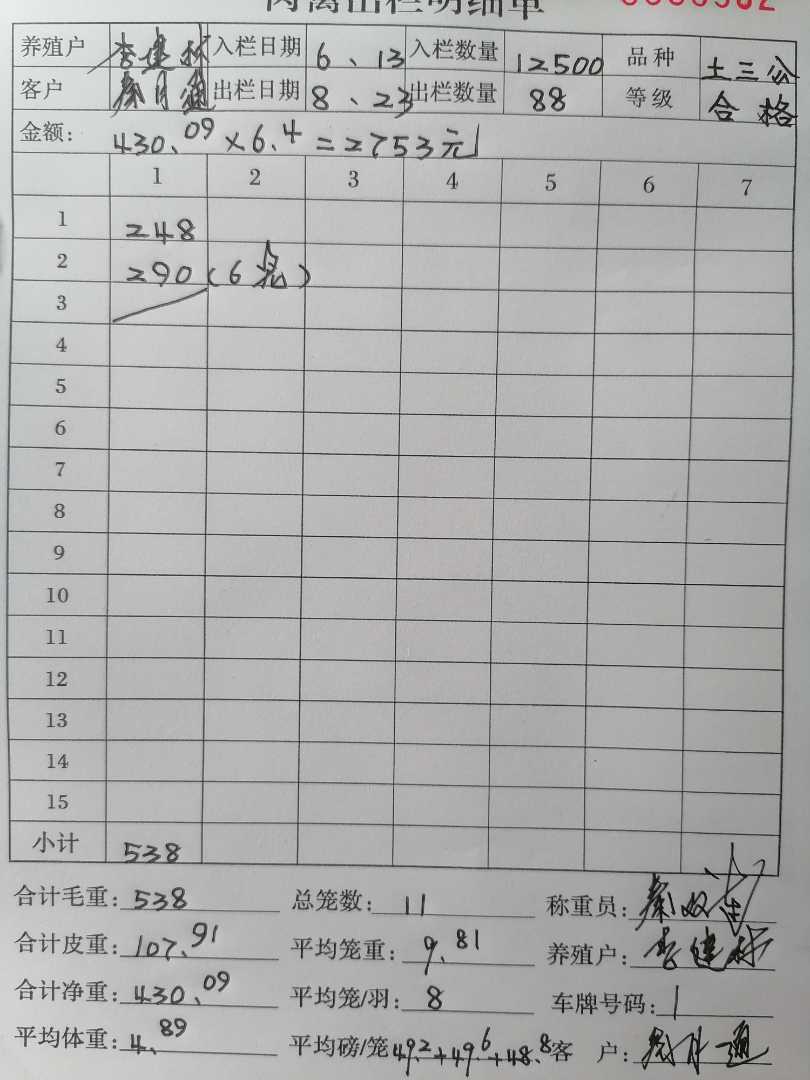 肉禽出栏明细单
养殖户 李建标 入栏日期 6、13 入栏数量 12500 品种 土三公
客户 秦月通 出栏日期 8、23 出栏数量 88 等级 合格
金额: 430.09×6.4=2753元
1 2 3 4 5 6 7
1 248
2 290(6笼)
3
4
5
6
7
8
9
10
11
12
13
14
15
小计 538
合计毛重: 538 总笼数: 11 称重员:
合计皮重: 107.91 平均笼重: 9.81 养殖户: 李建标
合计净重: 430.09 平均笼/羽: 8 车牌号码: 1
平均体重: 4.89 平均磅/笼 49.2+49.6+48.8 客 户: 秦月通